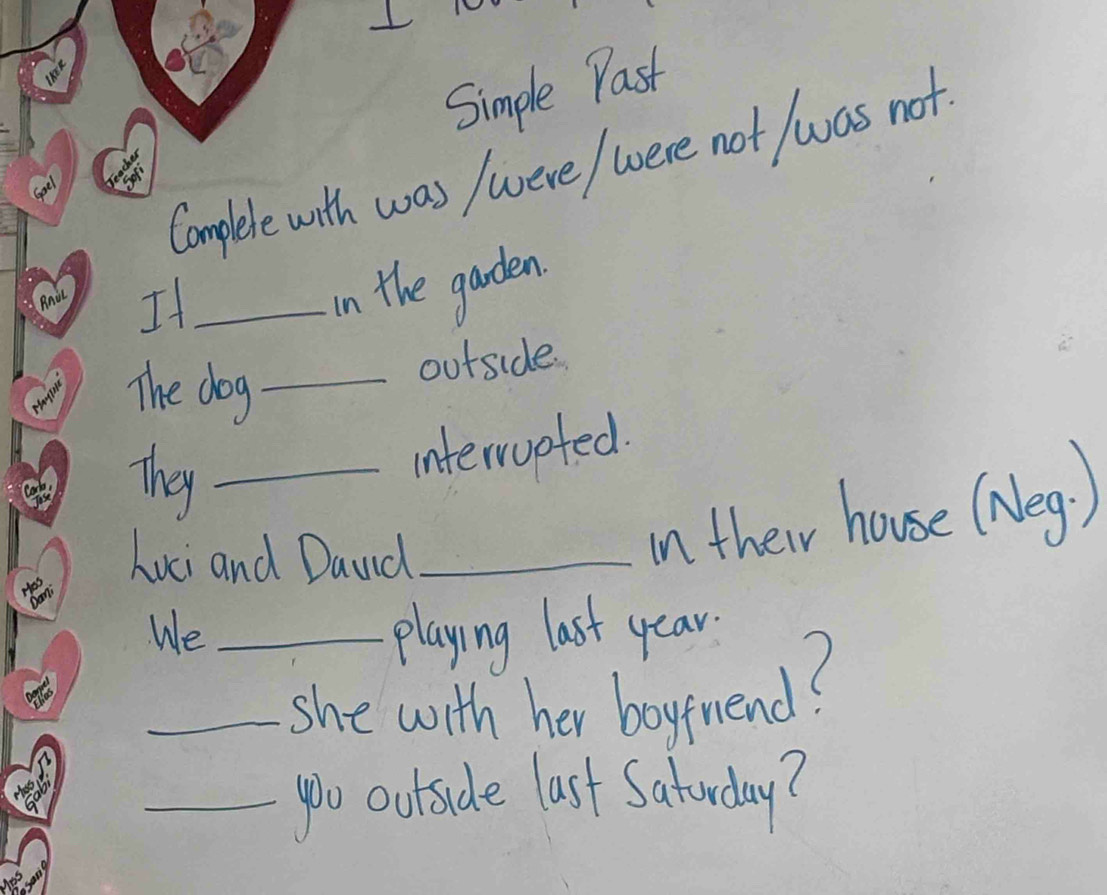 I
Simple Past
Complete with was /were/ were not /was not.
It ______ in the garden.
The dog ______ outside.
They ______ interrupted.
Luci and David ______ in their house (Neg.)
We ______ playing last year.
______ she with her boyfriend?
______ you outside last Saturday?
IKER
Gael
Teacher
Sofi
RAÚL
Carlo
José
Miss
Dani
Elias
Miss
Gabi
Miss